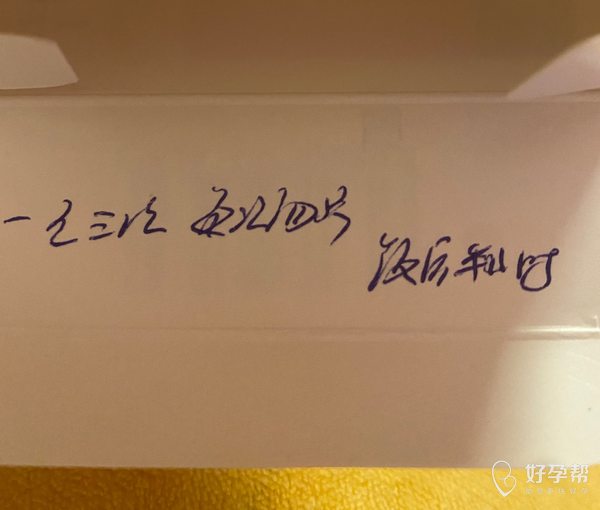 一天三次 每次四片
饭后半小时
好孕帮